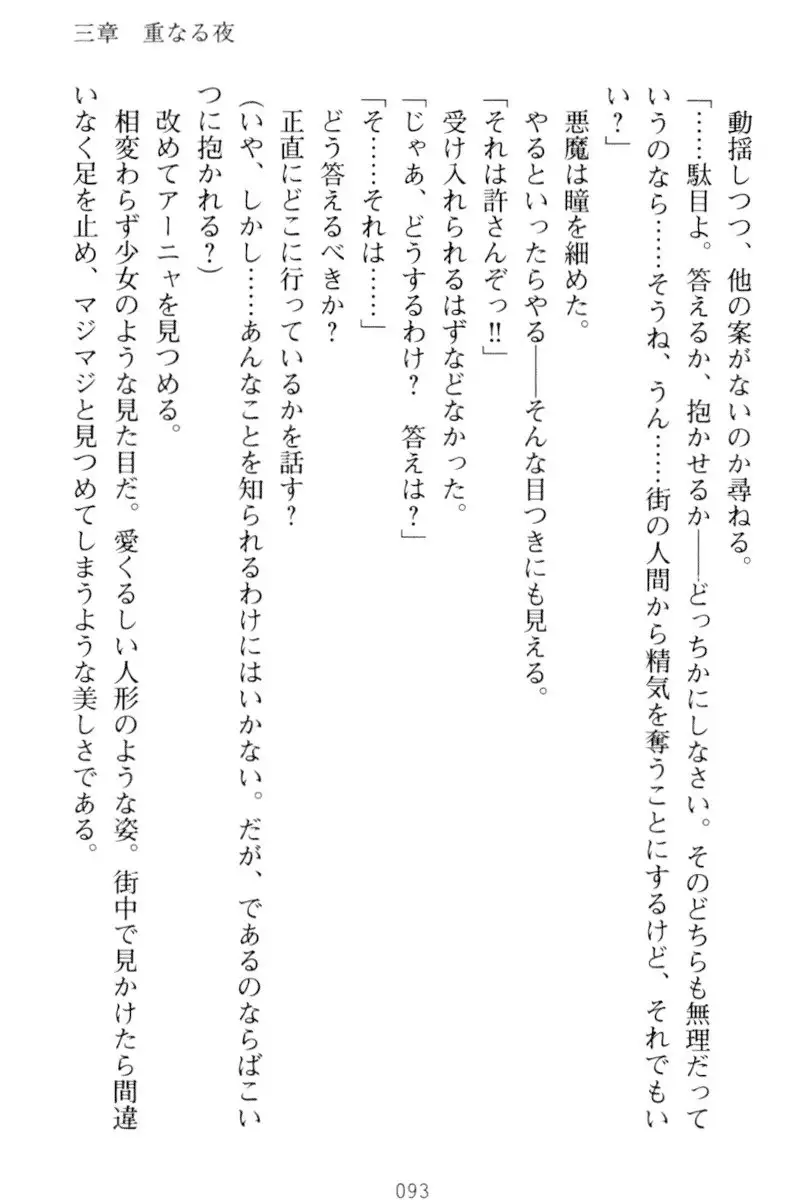 三章　重なる夜
　動揺しつつ、他の案がないのか尋ねる。
「……駄目よ。答えるか、抱かせるか――どっちかにしなさい。そのどちらも無理だって
いうのなら……そうね、うん……街の人間から精気を奪うことにするけど、それでもい
い？」
　悪魔は瞳を細めた。
　やるといったらやる――そんな目つきにも見える。
「それは許さんぞっ!!」
　受け入れられるはずなどなかった。
「じゃあ、どうするわけ？　答えは？」
「そ……それは……」
　どう答えるべきか？
　正直にどこに行っているかを話す？
（いや、しかし……あんなことを知られるわけにはいかない。だが、であるのならばこい
つに抱かれる？）
　改めてアーニャを見つめる。
　相変わらず少女のような見た目だ。愛くるしい人形のような姿。街中で見かけたら間違
いなく足を止め、マジマジと見つめてしまうような美しさである。
093